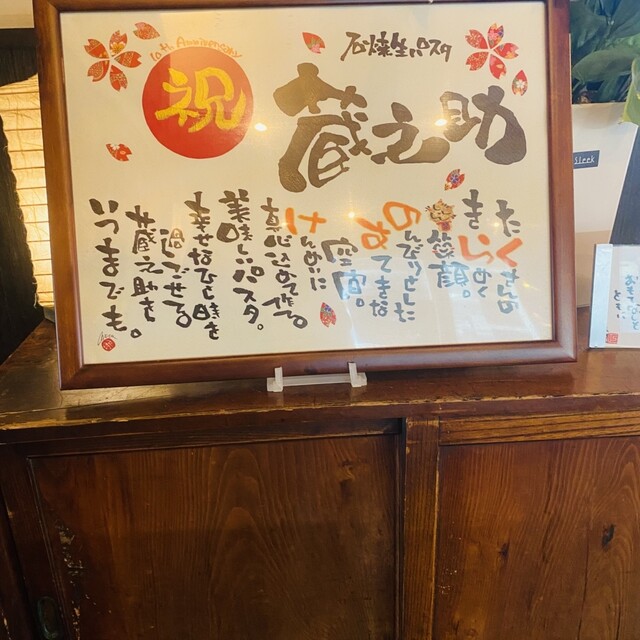 10th Anniversary
祝
石焼生パスタ
蔵之助
たくさんの
きらめく
笑顔。
のんびりとした
すてきな
空間。
けんめいに
真心込めて作る。
美味しいパスタ。
幸せなひと時を
過ごせる。
蔵之助を。
いつまでも。
Sleek